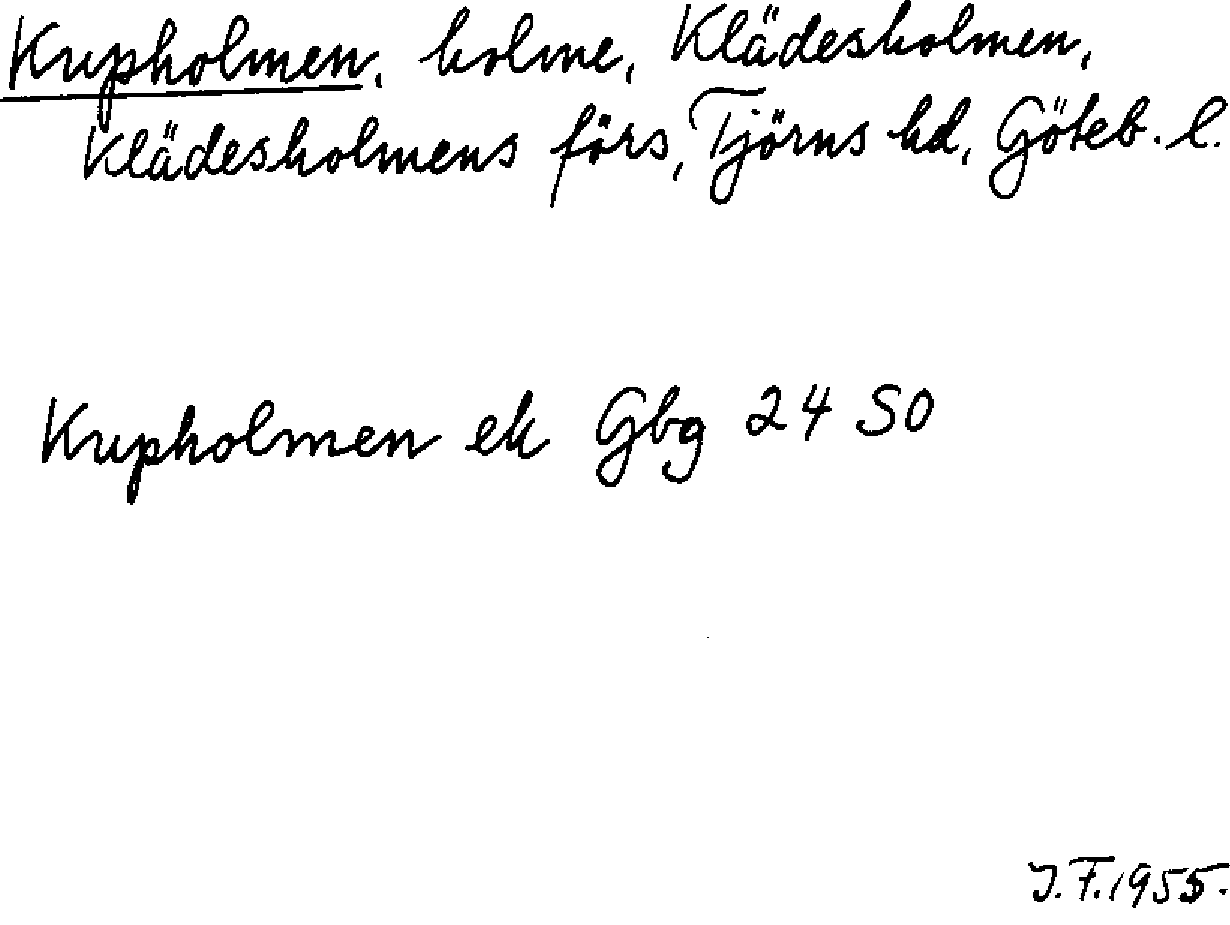 Kupholmen, holme, Klädesholmen,
Klädesholmens förs, Tjörns hd, Göteb. l.
Kupholmen ek Gbg 24 SO
J.F. 1955.